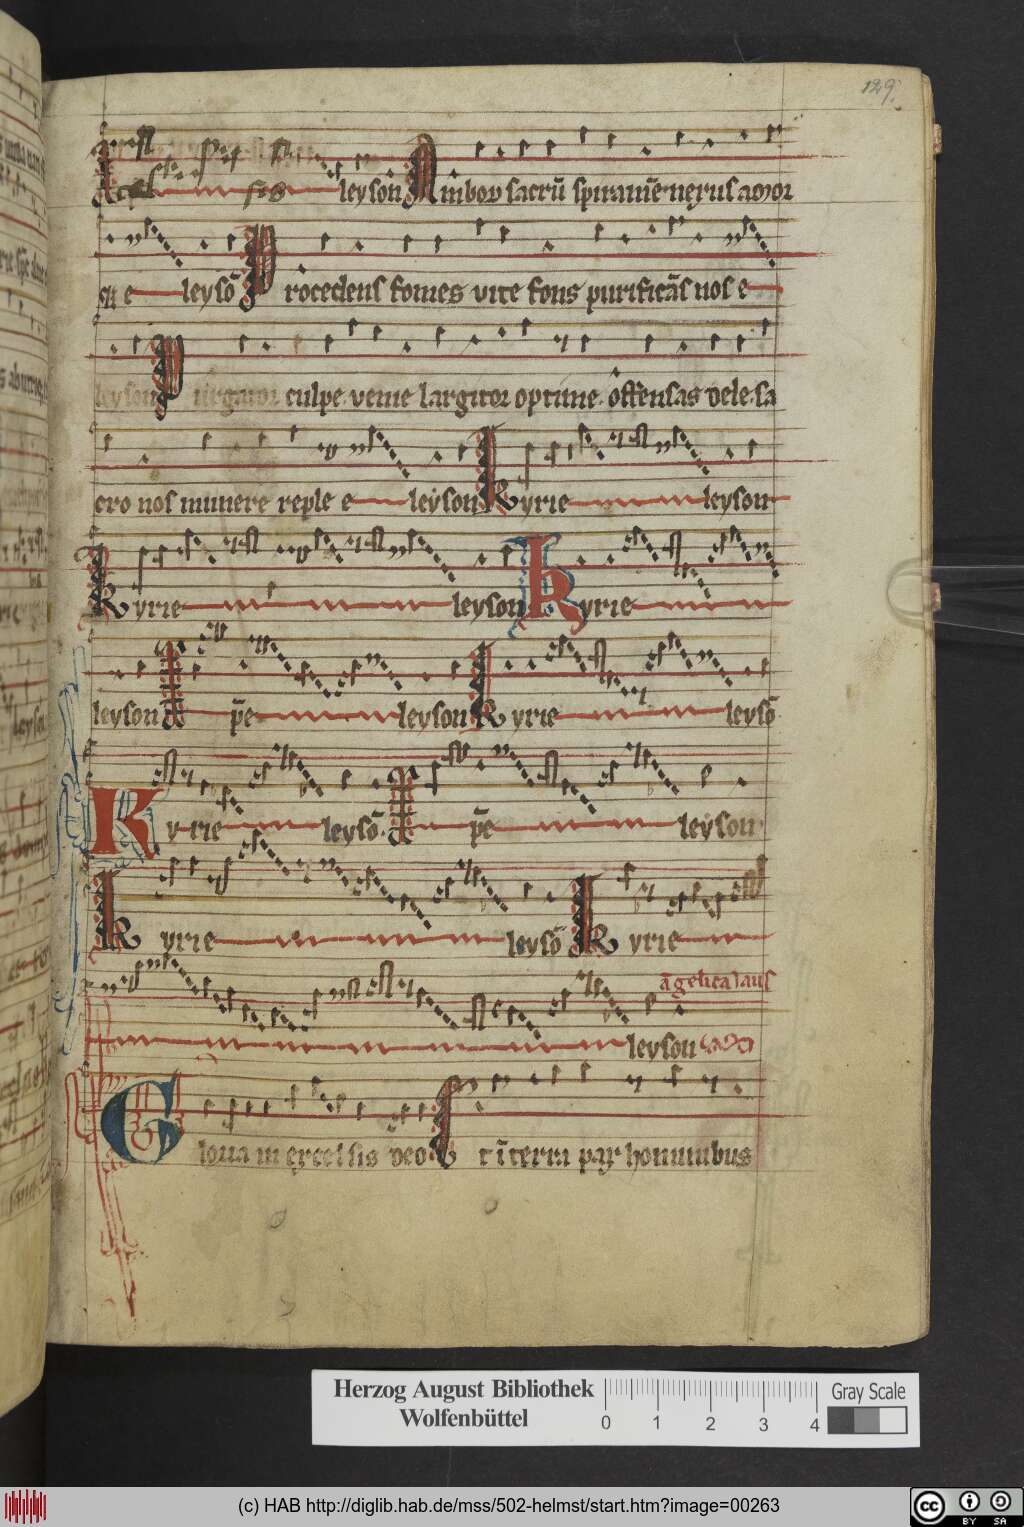 129.
leyson Amborum sacrū spiramē nexus amor
q̃ e leysō Procedens fomes vite fons purificās nos e
leyson Purgator culpe venie largitor optime offensas dele sa
cro nos munere reple e leyson Kyrie leyson
Kyrie leyson Kyrie
leyson Xpe leyson Kyrie leysō
Kyrie leysō Xpe leyson
Kyrie leysō Kyrie
āgelica laus
leyson
Gloria in excelsis deo Et ī terra pax hominibus
Herzog August Bibliothek
Wolfenbüttel
0 1 2 3 4
Gray Scale
(c) HAB http://diglib.hab.de/mss/502-helmst/start.htm?image=00263
cc BY SA